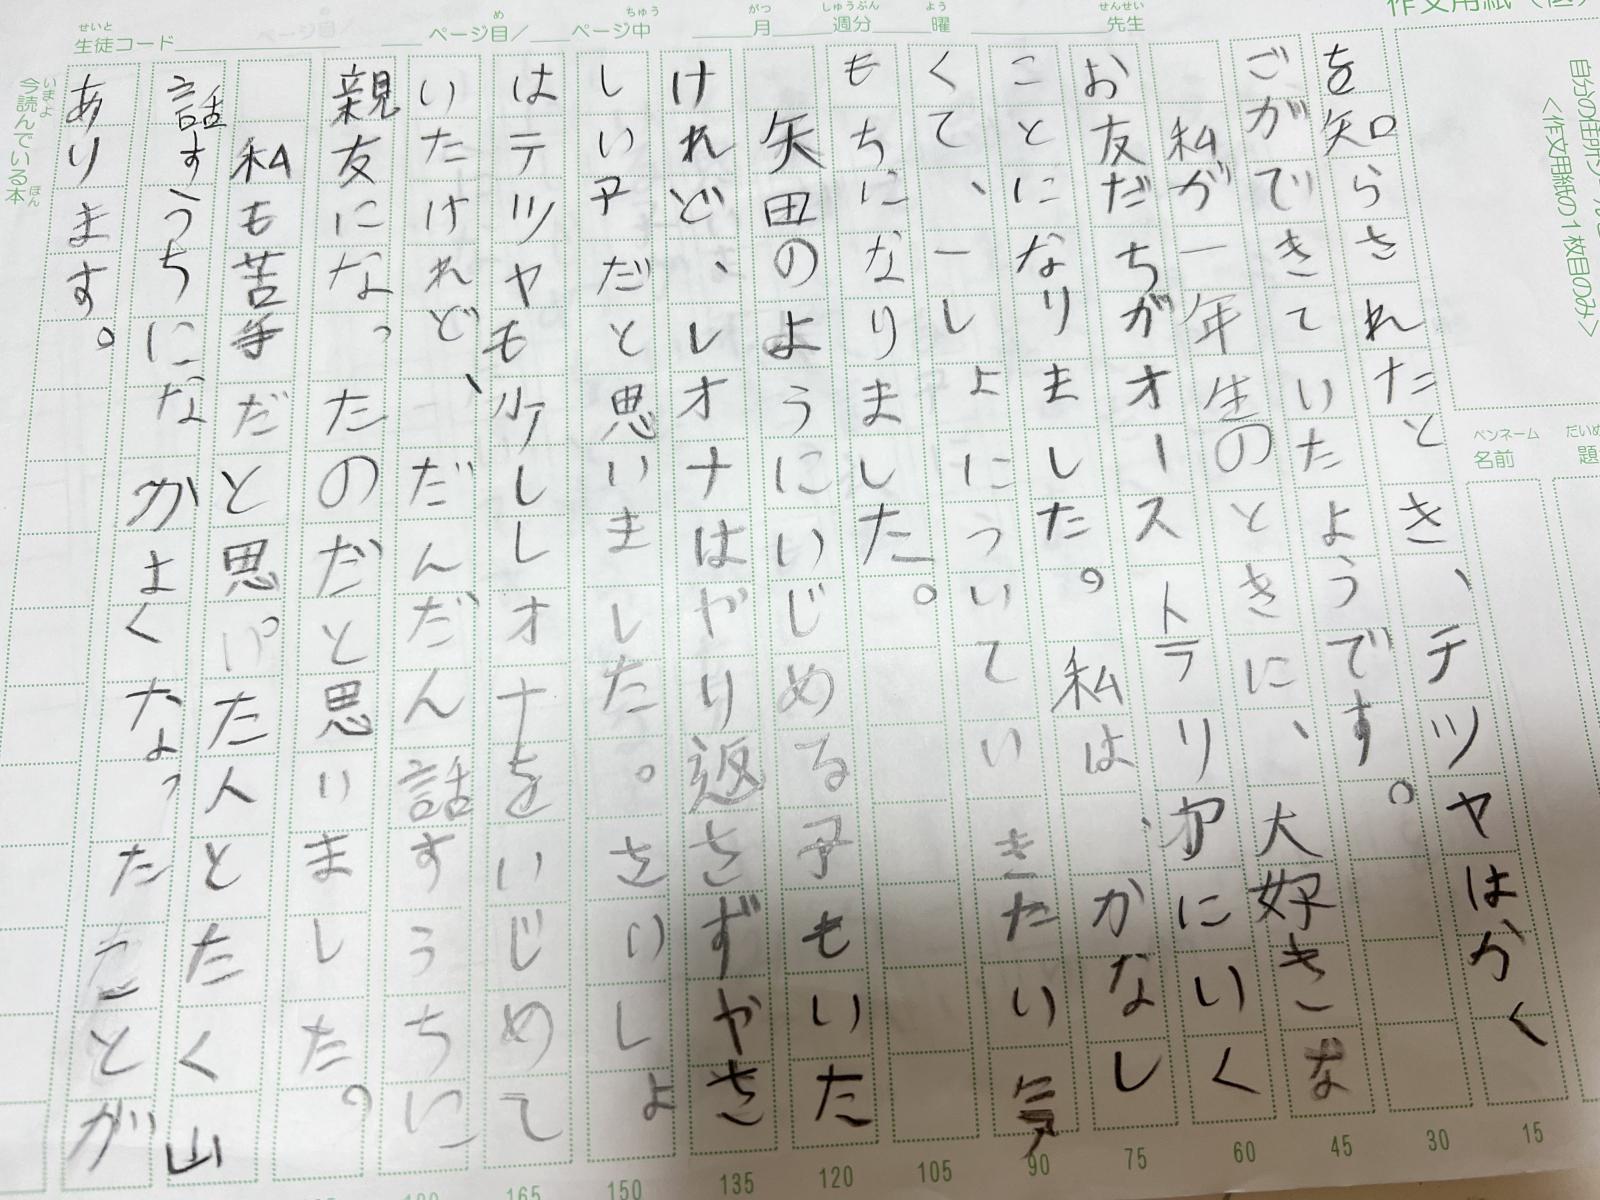 作文用紙
自分の住所
＜作文用紙の1枚目のみ＞
だいめ
題
ペンネーム
名前
せんせい
先生
よう
曜
しゅうぶん
週分
がつ
月
ちゅう
ページ中
め
ページ目／
せいと
生徒コード
を知らされたとき、テツヤはかく
ごができていたようです。
私が一年生のときに、大好きな
お友だちがオーストラリアにいく
ことになりました。私はかなし
くて、一しょについていきたい気
もちになりました。
矢田のようにいじめる子もいた
けれど、レオナはやり返さずやさ
しい子だと思いました。さいしょ
はテツヤも少ししレオナをいじめて
いたけれど、だんだん話すうちに
親友になったのだと思いました。
私も苦手だと思った人とたく山
話すうちになかよくなったことが
あります。
いまよ　ほん
今読んでいる本
15
30
45
60
75
90
105
120
135
150
165